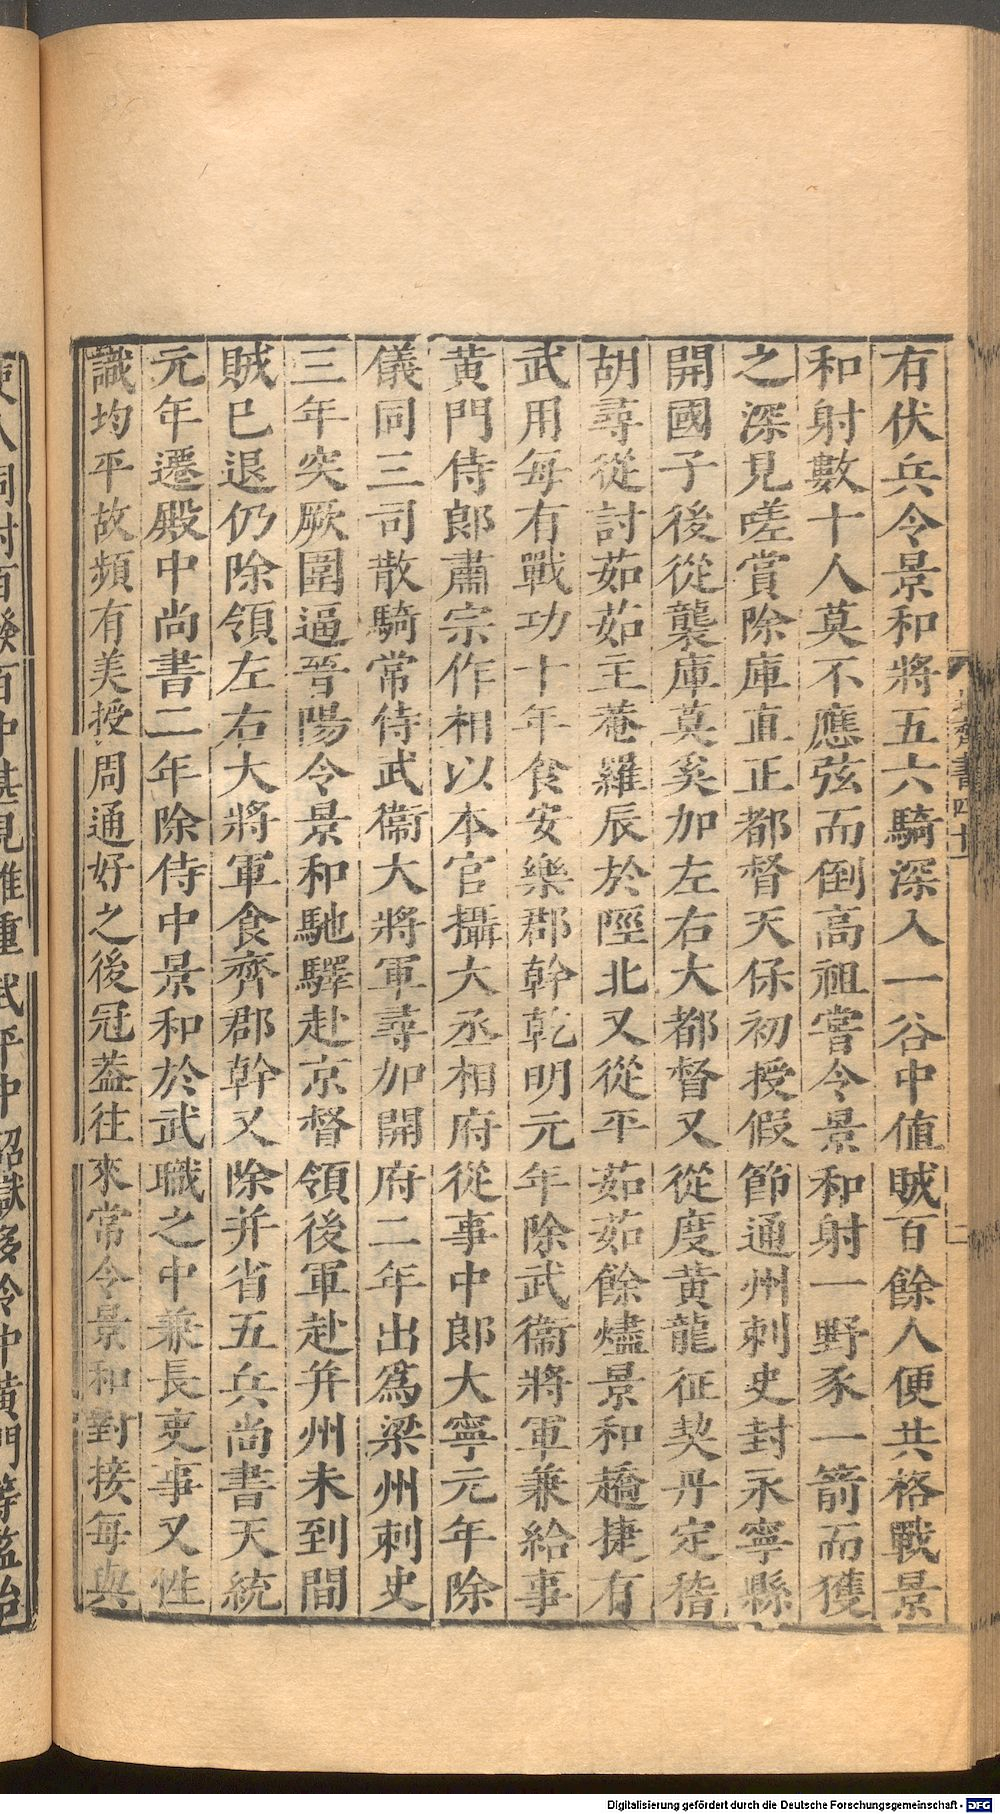 有伏兵令景和將五六騎深入一谷中值賊百餘人便共格戰景
和射數十人莫不應弦而倒高祖嘗令景和射一野豕一箭而獲
之深見嗟賞除庫直正都督天保初授假節通州刺史封永寧縣
開國子後從襲庫莫奚加左右大都督又從度黃龍征契丹定稽
胡尋從討茹茹主菴羅辰於陘北又從平茹茹餘燼景和趫捷有
武用每有戰功十年食安樂郡幹乾明元年除武衞將軍兼給事
黃門侍郎肅宗作相以本官攝大丞相府從事中郎大寧元年除
儀同三司散騎常侍武衞大將軍尋加開府二年出爲梁州刺史
三年突厥圍逼晉陽令景和馳驛赴京督領後軍赴并州未到間
賊已退仍除領左右大將軍食齊郡幹又除并省五兵尚書天統
元年遷殿中尚書二年除侍中景和於武職之中兼長吏事又性
識均平故頻有美授周通好之後冠蓋往來常令景和對接每與
北齊書四十一
二
Digitalisierung gefördert durch die Deutsche Forschungsgemeinschaft - DFG